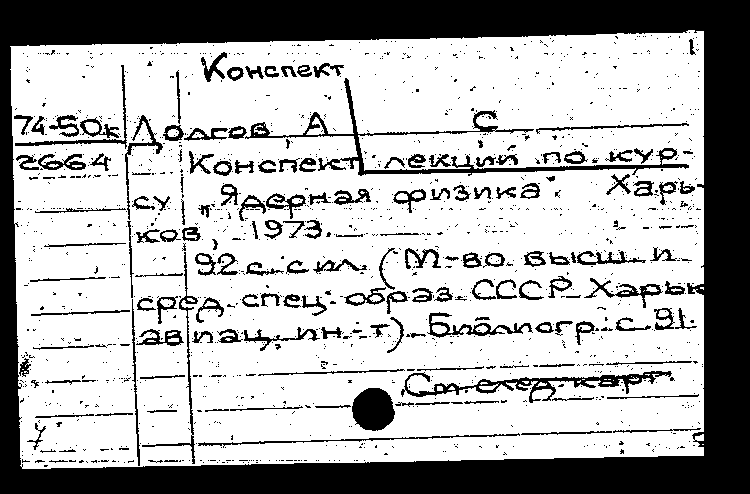 1
Конспект
74-50к Долгов, А С
2664 Конспект лекций по кур-
су „Ядерная физика". Харь-
ков, 1973.
92 с. с ил. (М-во высш. и
сред. спец. образ. СССР. Харьк
авиац. ин-т). Библиогр.: с. 91.
См. след. карт.